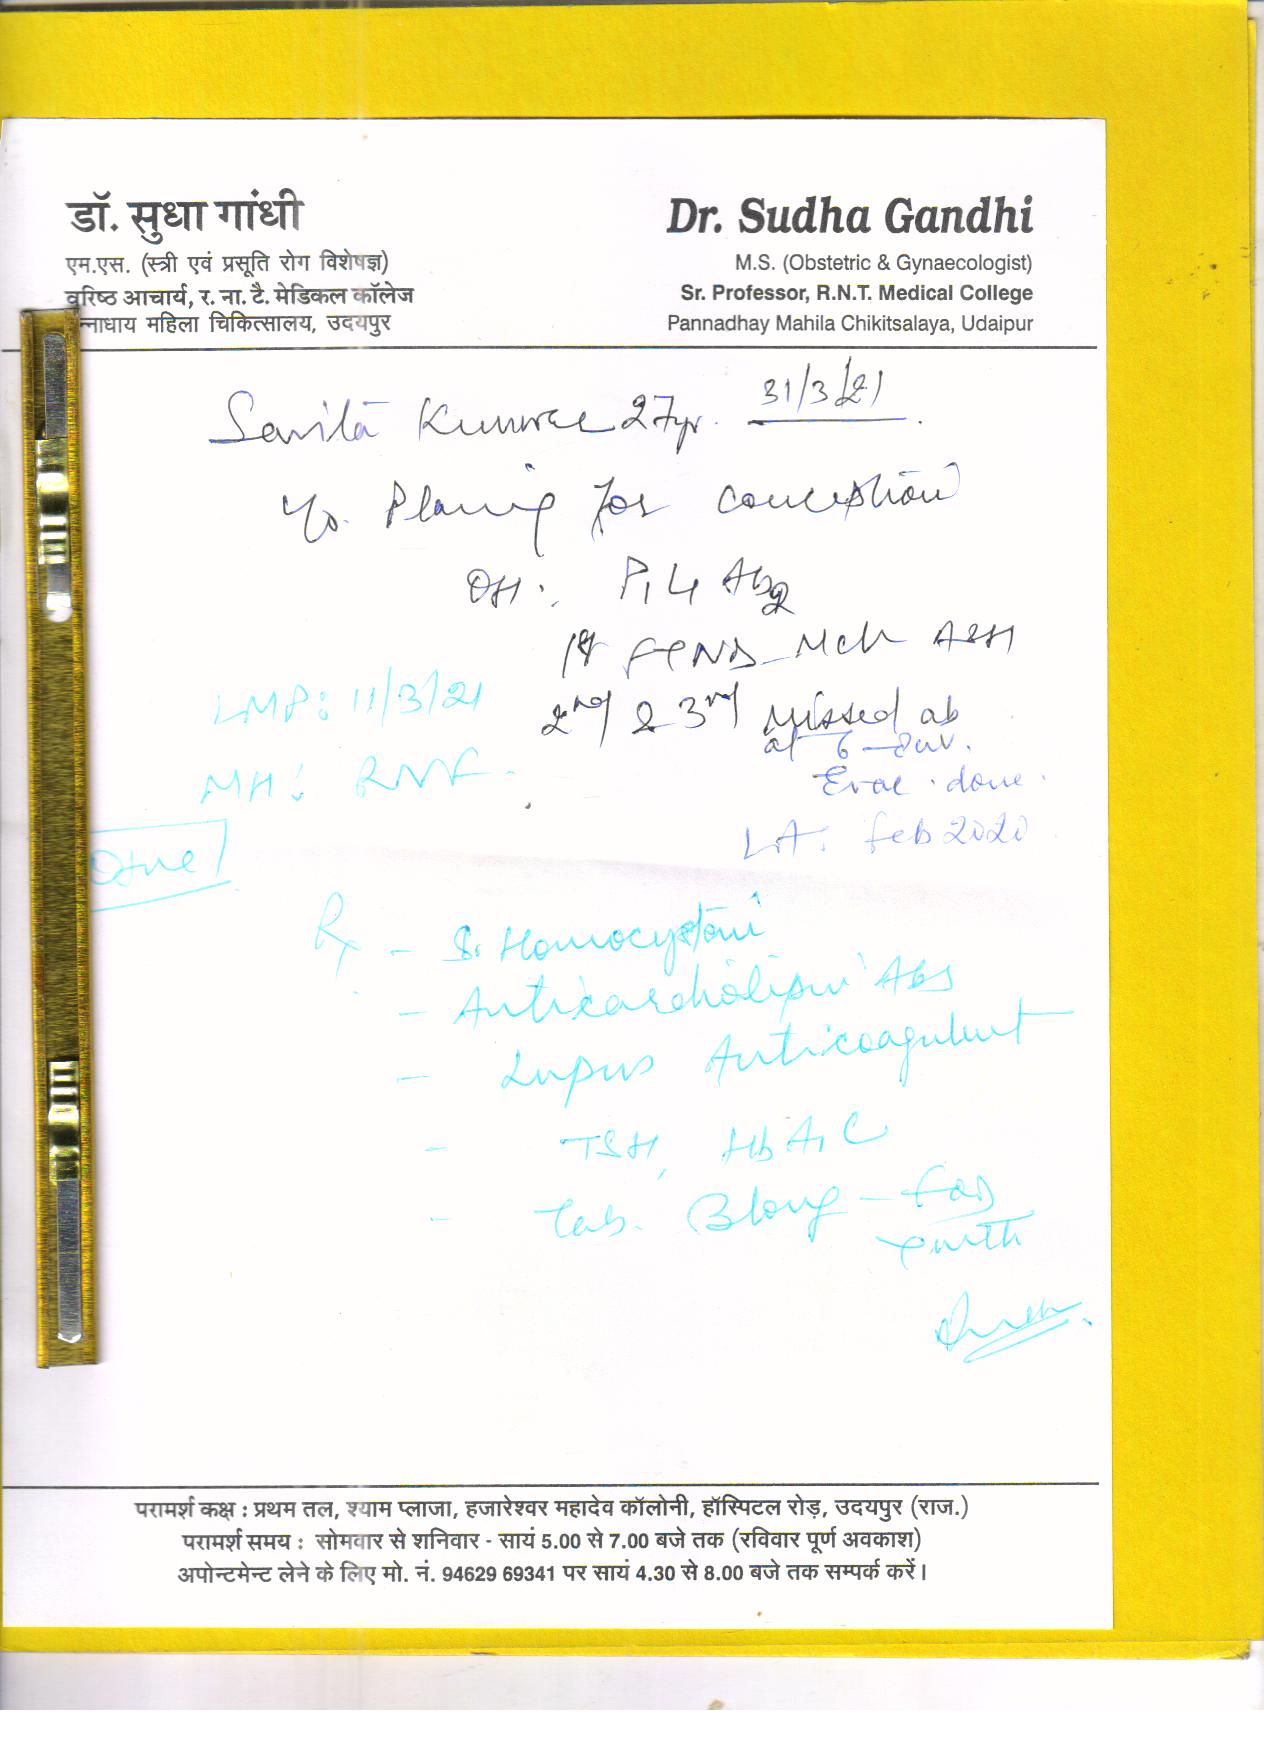 डॉ. सुधा गांधी
एम.एस. (स्त्री एवं प्रसूति रोग विशेषज्ञ)
वरिष्ठ आचार्य, र. ना. टै. मेडिकल कॉलेज
न्नाधाय महिला चिकित्सालय, उदयपुर
Dr. Sudha Gandhi
M.S. (Obstetric & Gynaecologist)
Sr. Professor, R.N.T. Medical College
Pannadhay Mahila Chikitsalaya, Udaipur
31/3/21
Savita 27yr.
Planing for conception
OH: P1 L1 Ab2
1st FTND Mch A&H
2nd & 3rd missed ab
at 6
Evac. done.
LA: Feb 2020
LMP: 11/3/21
MH:
Rx - S. Homocystein
- Anticardiolipin Abs
- Lupus Anticoagulent
- TSH, HbA1C
- Tab. Blong
परामर्श कक्ष : प्रथम तल, श्याम प्लाजा, हजारेश्वर महादेव कॉलोनी, हॉस्पिटल रोड़, उदयपुर (राज.)
परामर्श समय : सोमवार से शनिवार - सायं 5.00 से 7.00 बजे तक (रविवार पूर्ण अवकाश)
अपोन्टमेन्ट लेने के लिए मो. नं. 94629 69341 पर सायं 4.30 से 8.00 बजे तक सम्पर्क करें।